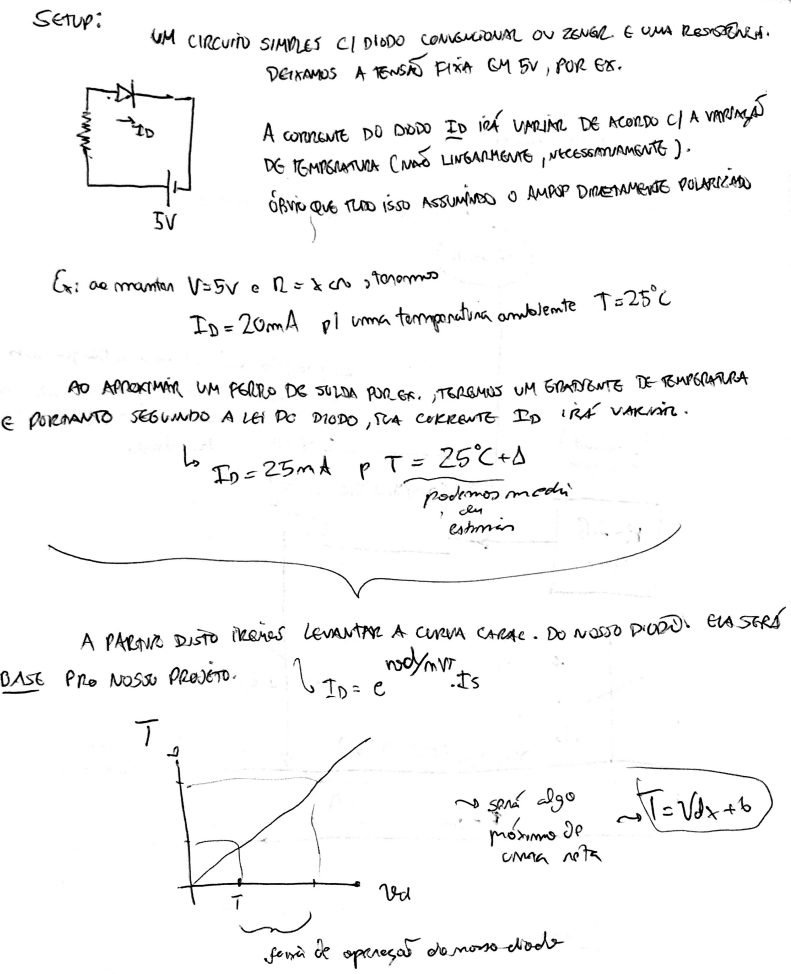 SETUP:
UM CIRCUITO SIMPLES C/ DIODO CONVENCIONAL OU ZENER E UMA RESISTÊNCIA.
DEIXAMOS A TENSÃO FIXA EM 5V, POR EX.
I_D
5V
A CORRENTE DO DIODO I_D IRÁ VARIAR DE ACORDO C/ A VARIAÇÃO
DE TEMPERATURA (NÃO LINEARMENTE, NECESSARIAMENTE).
ÓBVIO QUE TUDO ISSO ASSUMINDO O AMPOP DIRETAMENTE POLARIZADO
Ex: ao manter V=5V e R = x, teremos
I_D = 20mA p/ uma temperatura ambiente T=25°C
AO APROXIMAR UM FERRO DE SOLDA POR EX., TEREMOS UM GRADIENTE DE TEMPERATURA
E PORTANTO SEGUINDO A LEI DO DIODO, SUA CORRENTE I_D IRÁ VARIAR.
I_D = 25mA p T = 25°C+Δ
podemos medir
ou
estimar
A PARTIR DISTO IREMOS LEVANTAR A CURVA CARAC. DO NOSSO DIODO. ELA SERÁ
BASE PRO NOSSO PROJETO.
I_D = e .I_S
T
será algo
próximo de
uma reta
T=Vdx+b
T
Vd
de operação do nosso diodo